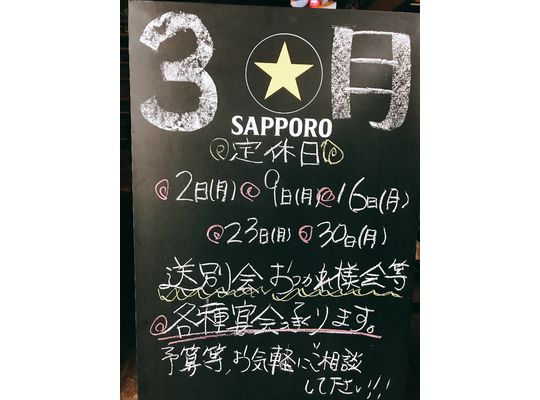 3月
SAPPORO
定休日
2日(月) 9日(月) 16日(月)
23日(月) 30日(月)
送別会 おつかれ様会等
各種宴会承ります。
予算等、お気軽にご相談
して下さい!!!